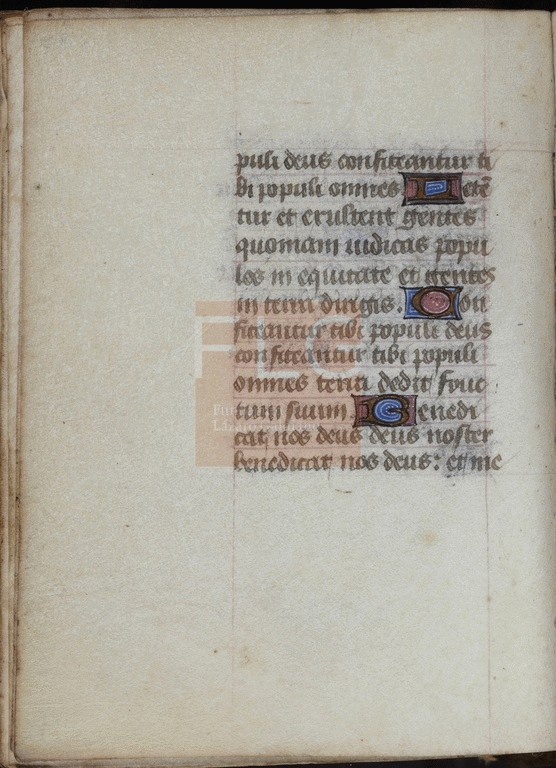 puli deus confiteantur ti
bi populi omnes Letē
tur et exultent gentes
quoniam iudicas popu
los in equitate et gentes
in terra dirigis. Con
fiteantur tibi populi deus
confiteantur tibi populi
omnes terra dedit fruc
tum suum Benedi
cat nos deus deus noster
benedicat nos deus: et me